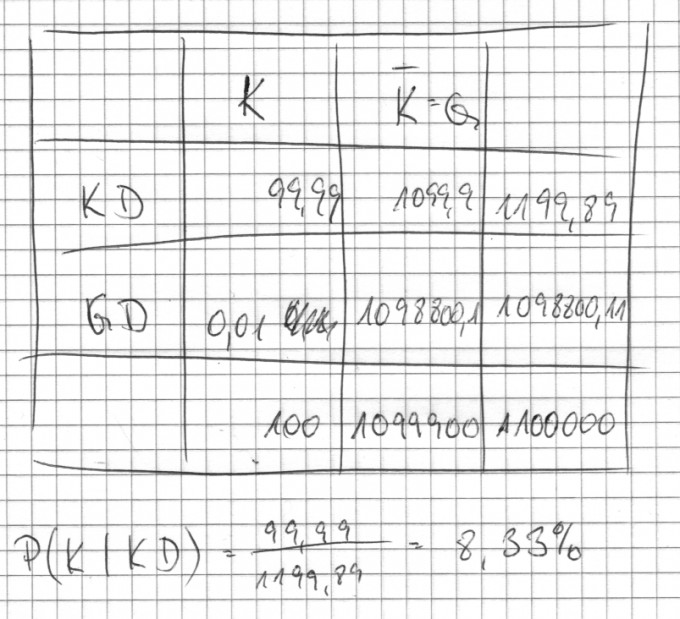 K K̄=G
KD 99,99 1099,9 1199,89
GD 0,01 1098800,1 1098800,11
100 1099900 1100000
P(K|KD) = 99,99 / 1199,89 = 8,33%